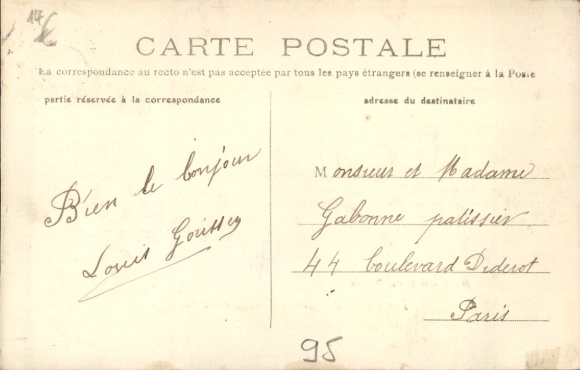 14€
CARTE POSTALE
La correspondance au recto n'est pas acceptée par tous les pays étrangers (se renseigner à la Poste
partie réservée à la correspondance
adresse du destinataire
Bien le bonjour
Louis
Monsieur et Madame
Gabonne patissier
44 boulevard Diderot
Paris
95